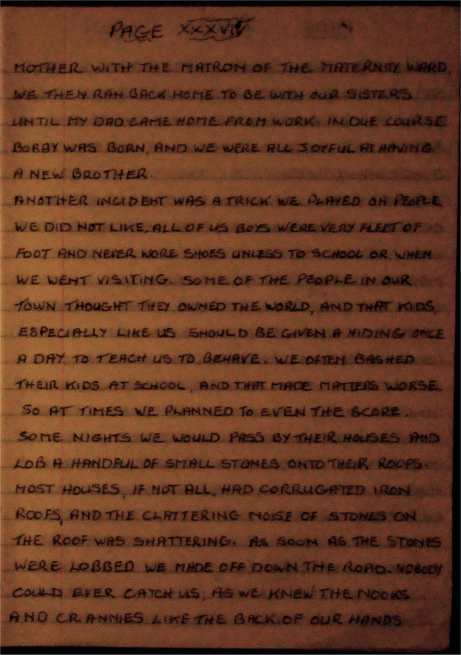 PAGE XXXVIV
MOTHER WITH THE MATRON OF THE MATERNITY WARD.
WE THEN RAN BACK HOME TO BE WITH OUR SISTERS
UNTIL MY DAD CAME HOME FROM WORK. IN DUE COURSE
BOBBY WAS BORN, AND WE WERE ALL JOYFUL AT HAVING
A NEW BROTHER.
ANOTHER INCIDENT WAS A TRICK WE PLAYED ON PEOPLE
WE DID NOT LIKE. ALL OF US BOYS WERE VERY FLEET OF
FOOT AND NEVER WORE SHOES UNLESS TO SCHOOL OR WHEN
WE WENT VISITING. SOME OF THE PEOPLE IN OUR
TOWN THOUGHT THEY OWNED THE WORLD, AND THAT KIDS,
ESPECIALLY LIKE US SHOULD BE GIVEN A HIDING ONCE
A DAY TO TEACH US TO BEHAVE. WE OFTEN BASHED
THEIR KIDS AT SCHOOL, AND THAT MADE MATTERS WORSE
SO AT TIMES WE PLANNED TO EVEN THE SCORE.
SOME NIGHTS WE WOULD PASS BY THEIR HOUSES AND
LOB A HANDFUL OF SMALL STONES ONTO THEIR ROOFS.
MOST HOUSES, IF NOT ALL, HAD CORRUGATED IRON
ROOFS, AND THE CLATTERING NOISE OF STONES ON
THE ROOF WAS SHATTERING. AS SOON AS THE STONES
WERE LOBBED WE MADE OFF DOWN THE ROAD. NOBODY
COULD EVER CATCH US, AS WE KNEW THE NOOKS
AND CRANNIES LIKE THE BACK OF OUR HANDS